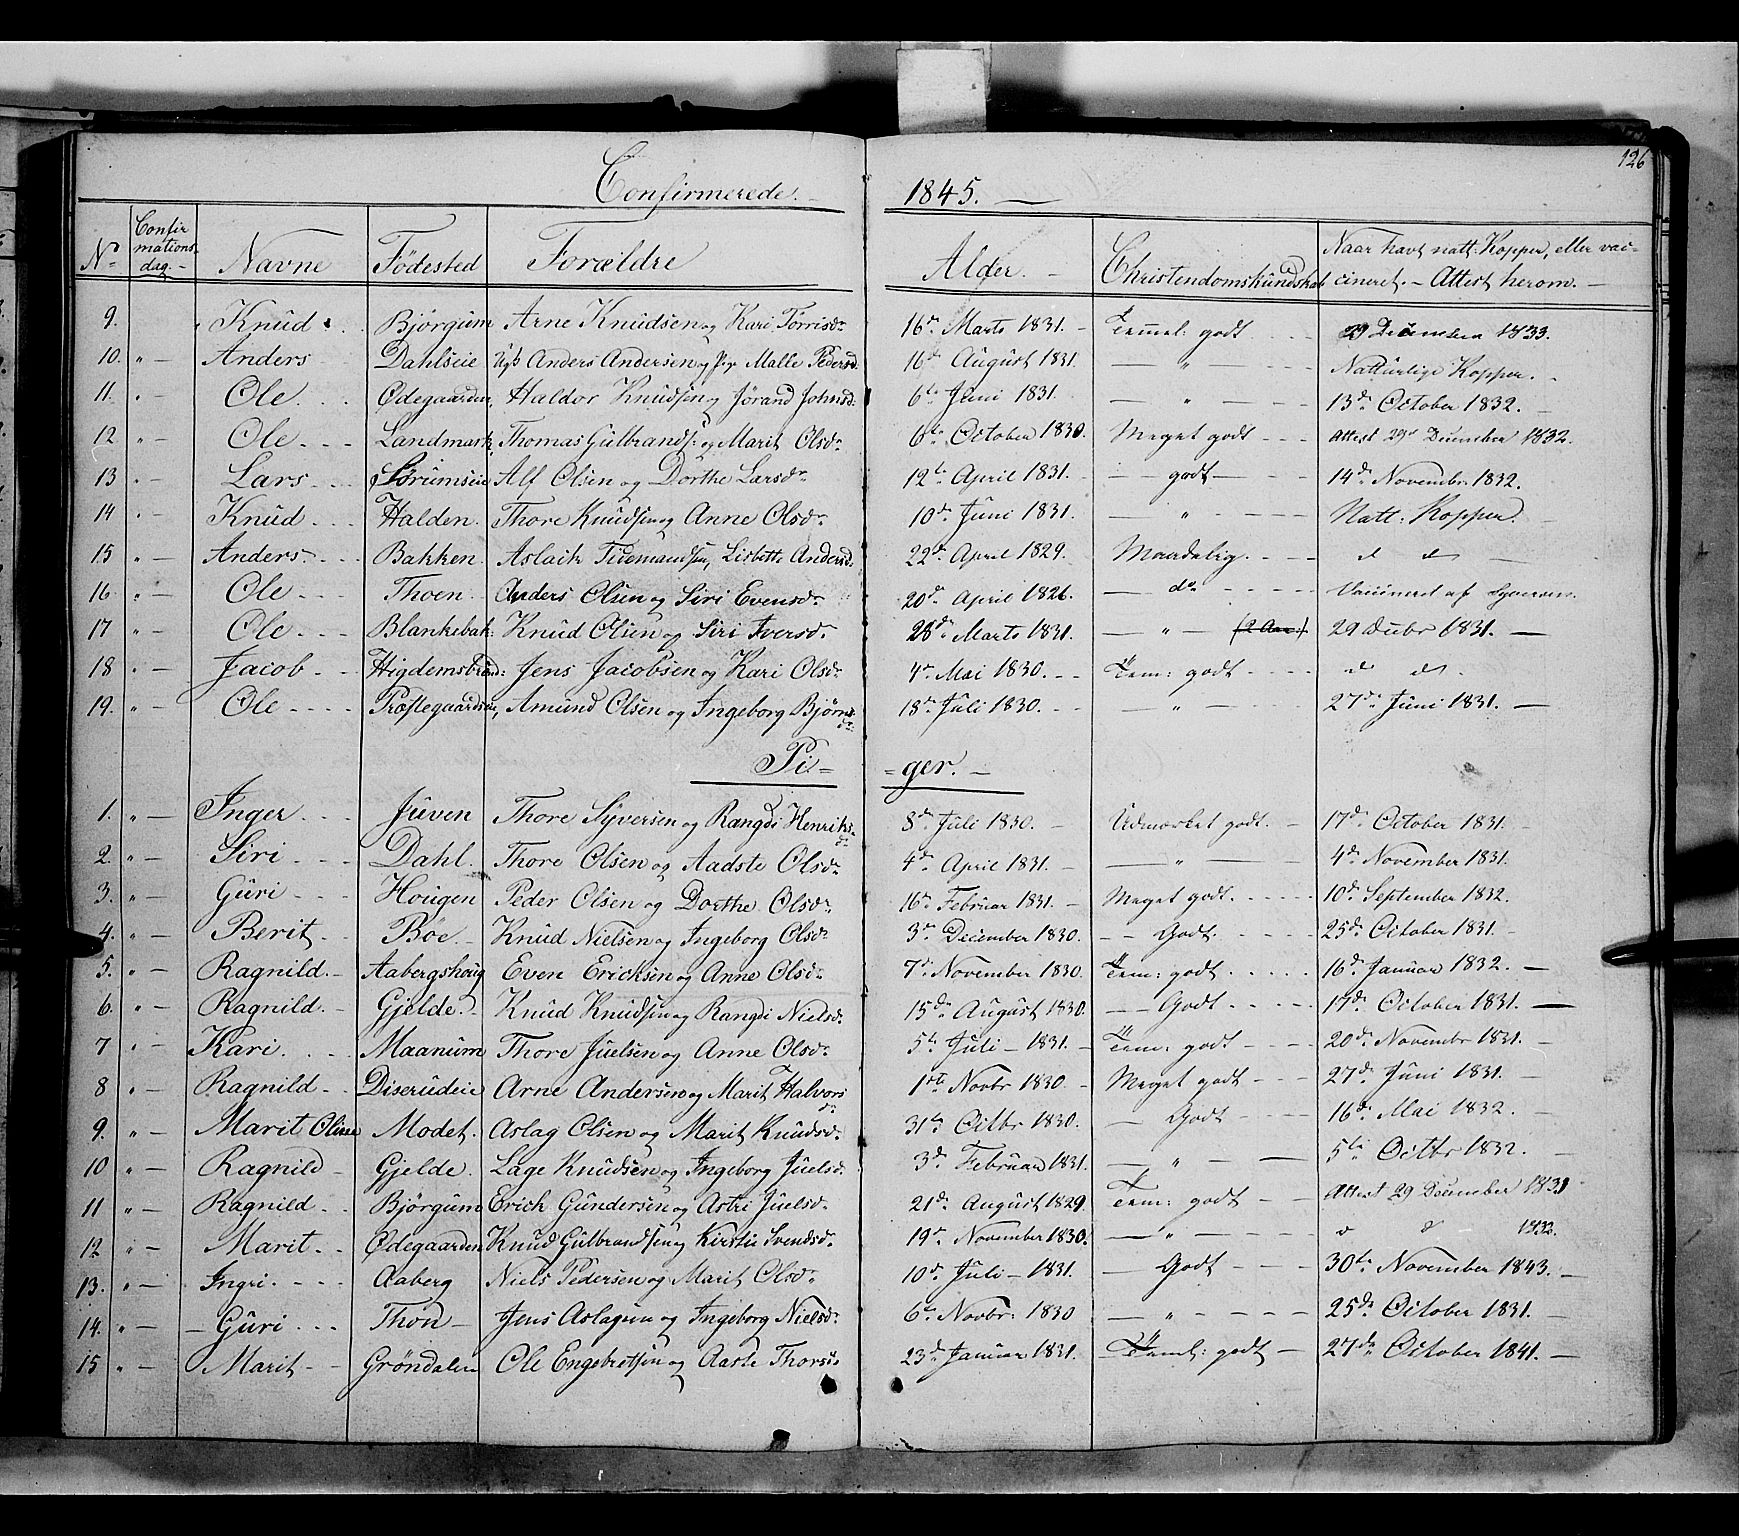 126
Confirmerede. 1845.
No Confirmationsdag. Navne Fødested Forældre Alder. Christendomskundskab Naar havt natt: Kopper, eller vaccineret. Attest herom.
9. Knud Bjørgum Arne Knudsen og Kari Torrisdr 16de Marts 1831. Temmel: godt 29 December 1833.
10. " Anders Dahlseie Ugk Anders Andersen og Malle Pedersd. 16de August 1831. " Naturlige Kopper.
11. " Ole Ødegaarden, Haldor Knudsen og Jørand Johnsd: 6te Juni 1831. " 13de October 1832.
12 " Ole Landmark, Thomas Gulbrands: og Marit Olsdr 6te October 1830. Meget godt Attest 29de December 1832.
13 " Lars Sørumseie Alf Olsen og Dorthe Larsdr 12te April 1831. godt 14de Novembr 1832.
14 " Knud Halden. Thore Knudsen og Anne Olsdr 10de Juni 1831. " Natt: Kopper.
15 " Anders Bakken. Aslack Tidemandsen, Lisbette Andersd: 22de April 1829. Maadelig. d d
16 " Ole Thoen Anders Olsen og Siri Evensdr 20de April 1826. do Vaccineret af
17 " Ole Blankebak: Knud Olsen og Siri Iversdr 28de Marts 1831. " 29 Decbr 1831.
18 " Jacob Higdemsbråd: Jens Jacobsen og Kari Olsdr 4de Mai 1830. Tem: godt d d.
19. " Ole Præstegaardseie, Amund Olsen og Ingeborg Bjørnsdr 18de Juli 1830. " 27de Juni 1831.
Pi= =ger.
1. " Inger Juven Thore Syversen og Rangdi Henriksdr 8de Juli 1830. Udmærket godt. 17de October 1831.
2. " Siri Dahl. Thore Olsen og Aadste Olsdr 4de April 1831. " 4de November 1831.
3. " Guri Hougen Peder Olsen og Dorthe Olsdr. 16de Februar 1831. Meget godt. 10de September 1832.
4. " Berit Bøe. Knud Nielsen og Ingeborg Olsdr 3die December 1830. Godt. 25de October 1831.
5. " Ragnild. Aabergshoug Even Ericksen og Anne Olsdr 7de November 1830. Tem: godt 16de Januar 1832.
6. " Ragnild. Gjelde. Knud Knudsen og Rangdi Nielsd. 15de August 1830. Godt. 17de October 1831.
7 " Kari. Maanum Thore Juelsen og Anne Olsdr 5te Juli 1831. Tem: godt 20de Novembr 1831.
8 " Ragnild Diserudeie Arne Andersen og Marit Halvorsdr 1ste Novbr 1830. Meget godt 27de Juni 1831.
9. " Marit Oline Modet. Aslag Olsen og Marit Knudsd. 31te Octbr 1830. Godt 16de Mai 1832.
10 " Ragnild Gjelde. Lage Knudsen og Ingeborg Juelsd. 3de Februar 1831. " 5te Octbr 1832.
11 " Ragnild Bjørgum Erick Gundersen og Astri Juelsdr 21de August 1829. Tem: godt Attest 29 December 1831
12 " Marit. Ødegaarden Knud Gulbrandsen og Kirsti Svendsdr 19de November 1830. " d d 1832.
13. " Ingri. Aaberg Niels Pedersen og Marit Olsdr 10de Juli 1831. Godt 30te November 1843.
14. " Guri Thon Jens Aslagsen og Ingeborg Nielsdr 6te Novbr: 1830 " 25de October 1831.
15 " Marit Grøndalen Ole Engebretsen og Aaste Thorsdr 23de Januar 1831. Teml: godt 27de October 1841.